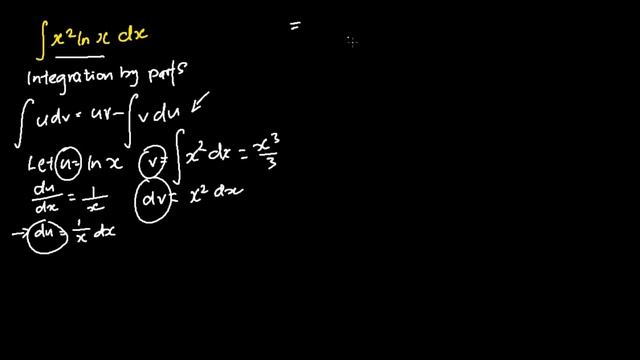 ∫ x² ln x dx
=
Integration by parts
∫ u dv = uv - ∫ v du
Let u = ln x   v = ∫ x² dx = x³/3
du/dx = 1/x   dv = x² dx
→ du = 1/x dx